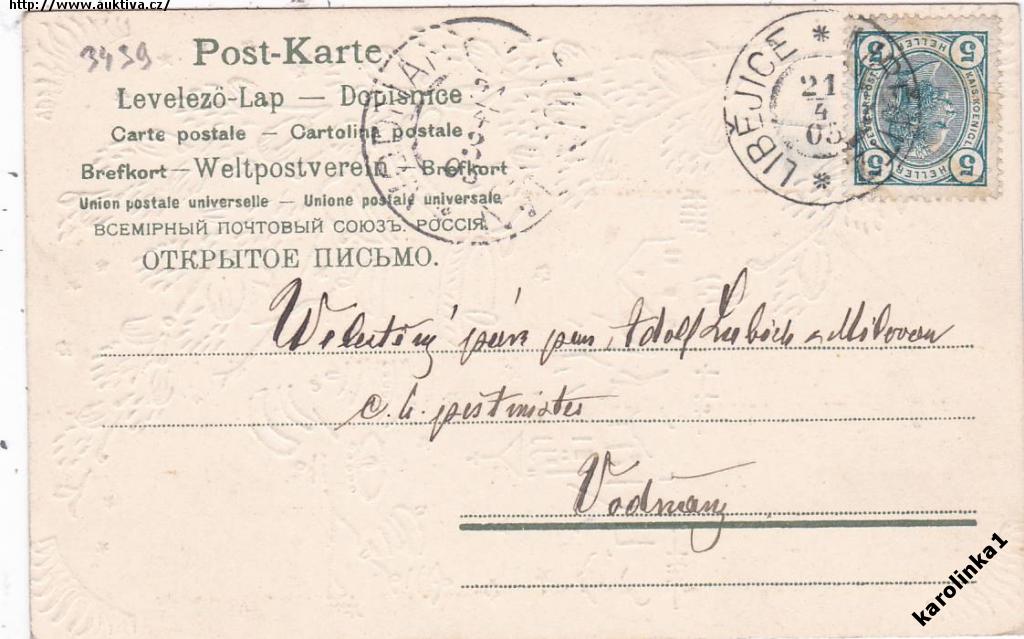 http://www.auktiva.cz/
3439
Post-Karte
Levelező-Lap — Dopisnice
Carte postale — Cartolina postale
Brefkort — Weltpostverein — Brefkort
Union postale universelle — Unione postale universale
ВСЕМІРНЫЙ ПОЧТОВЫЙ СОЮЗЪ. РОССІЯ.
ОТКРЫТОЕ ПИСЬМО.
* LIBĚJICE *
21
4
05
5 HELLER 5
KAIS. KOENIGL.
5 HELLER 5
pan Adolf
c. k. poštmistr
Vodňany
karolinka1